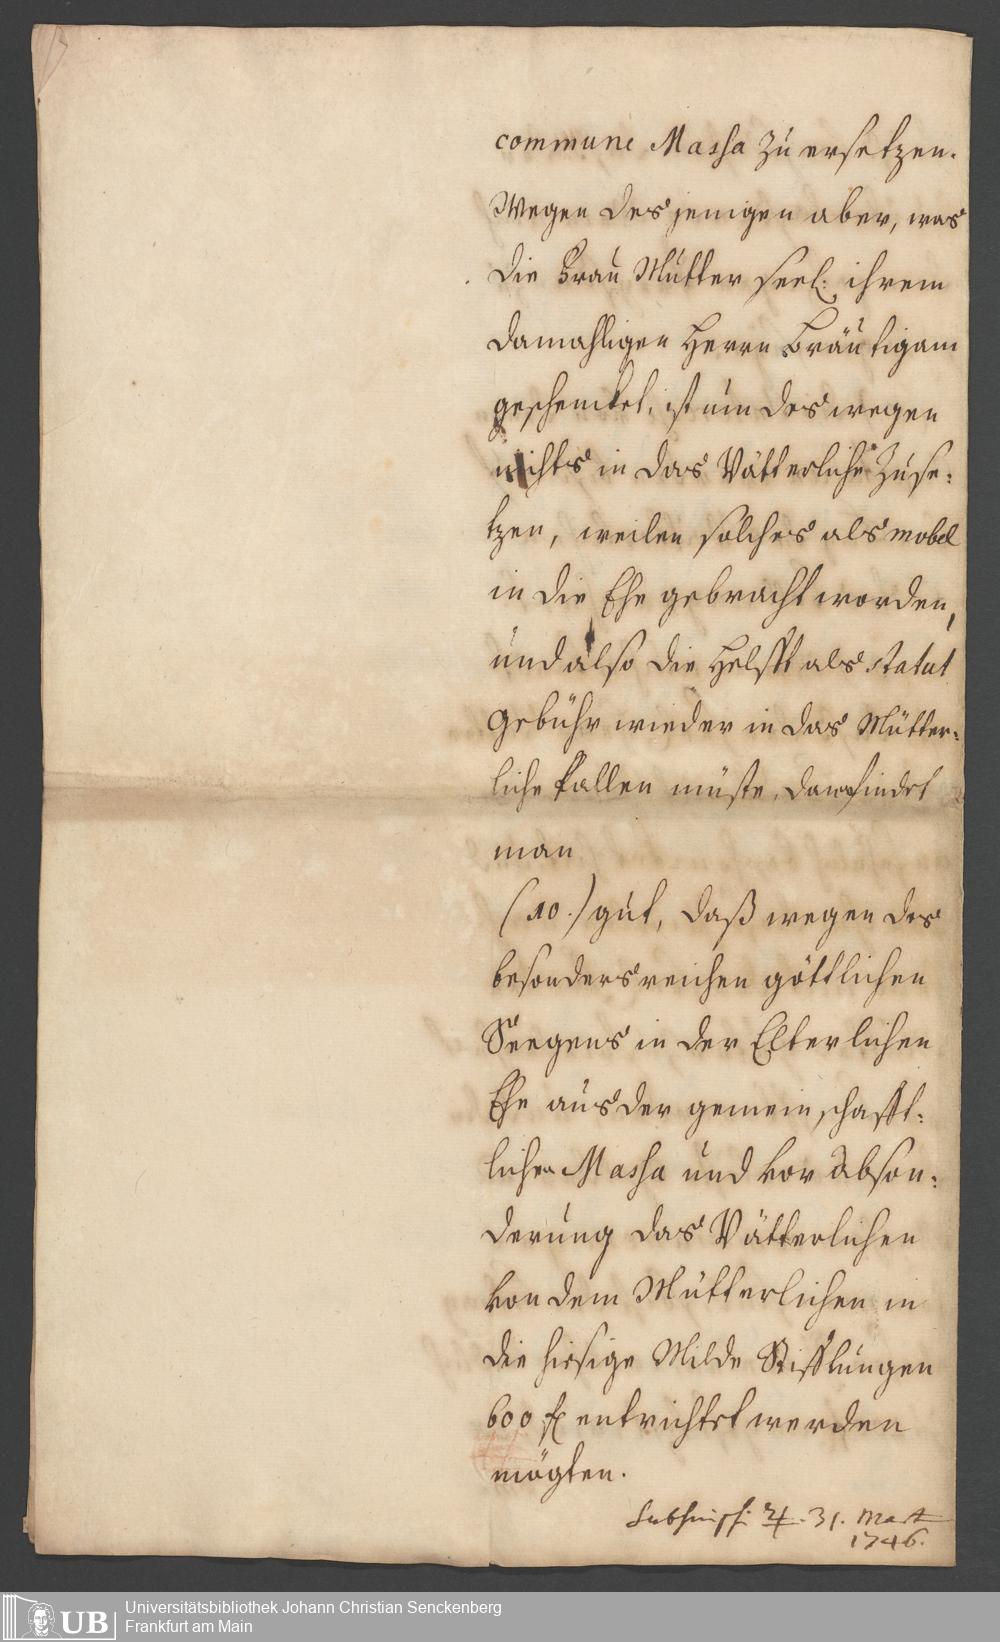 commune Massa zu ersetzen.
Wegen desjenigen aber, was
die Frau Mutter seel: ihrem
damahligen Herrn Bräutigam
geschencket, ist um deswegen
nichts in das Vätterliche zuse:
tzen, weilen solches als mobel
in die Ehe gebracht worden,
und also die Helfft als statut
Gebühr wieder in das Mütter:
liche fallen müste, dann findet
man
(10.) gut, daß wegen des
besonders reichen göttlichen
Seegens in der Elterlichen
Ehe aus der gemeinschafft:
lichen Massa und vor Abson:
derung das Vätterlichen
von dem Mütterlichen in
die hiesige Milde Stifftungen
600 f entrichtet werden
mögten.
31. Mart
1746.
UB Universitätsbibliothek Johann Christian Senckenberg
Frankfurt am Main